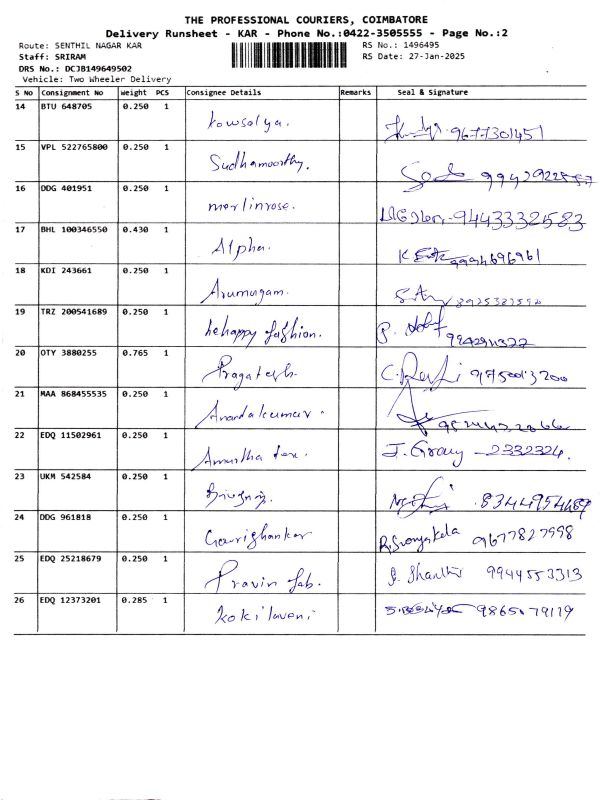 THE PROFESSIONAL COURIERS, COIMBATORE
Delivery Runsheet - KAR - Phone No.:0422-3505555 - Page No.:2
Route: SENTHIL NAGAR KAR
RS No.: 1496495
Staff: SRIRAM
RS Date: 27-Jan-2025
DRS No.: DCJB149649502
Vehicle: Two Wheeler Delivery
S No Consignment No Weight PCS Consignee Details Remarks Seal & Signature
14 BTU 648705 0.250 1 Kowsalya. 9677301451
15 VPL 522765800 0.250 1 Sudhamoorthy.
16 DDG 401951 0.250 1 merlinrose. 9443332583
17 BHL 100346550 0.430 1 Alpha. 9994696961
18 KDI 243661 0.250 1 Arumugam.
19 TRZ 200541689 0.250 1 behappy fashion. P.
20 OTY 3880255 0.765 1 Pragatesh.
21 MAA 868455535 0.250 1 Anandakumar.
22 EDQ 11502961 0.250 1 Amirtha tex. J. Grany - 2332324.
23 UKM 542584 0.250 1 8344954489
24 DDG 961818 0.250 1 Gowrishankar 9677827998
25 EDQ 25218679 0.250 1 Pravin fab. Shanthi 9944553313
26 EDQ 12373201 0.285 1 Kokilavani 9865079119